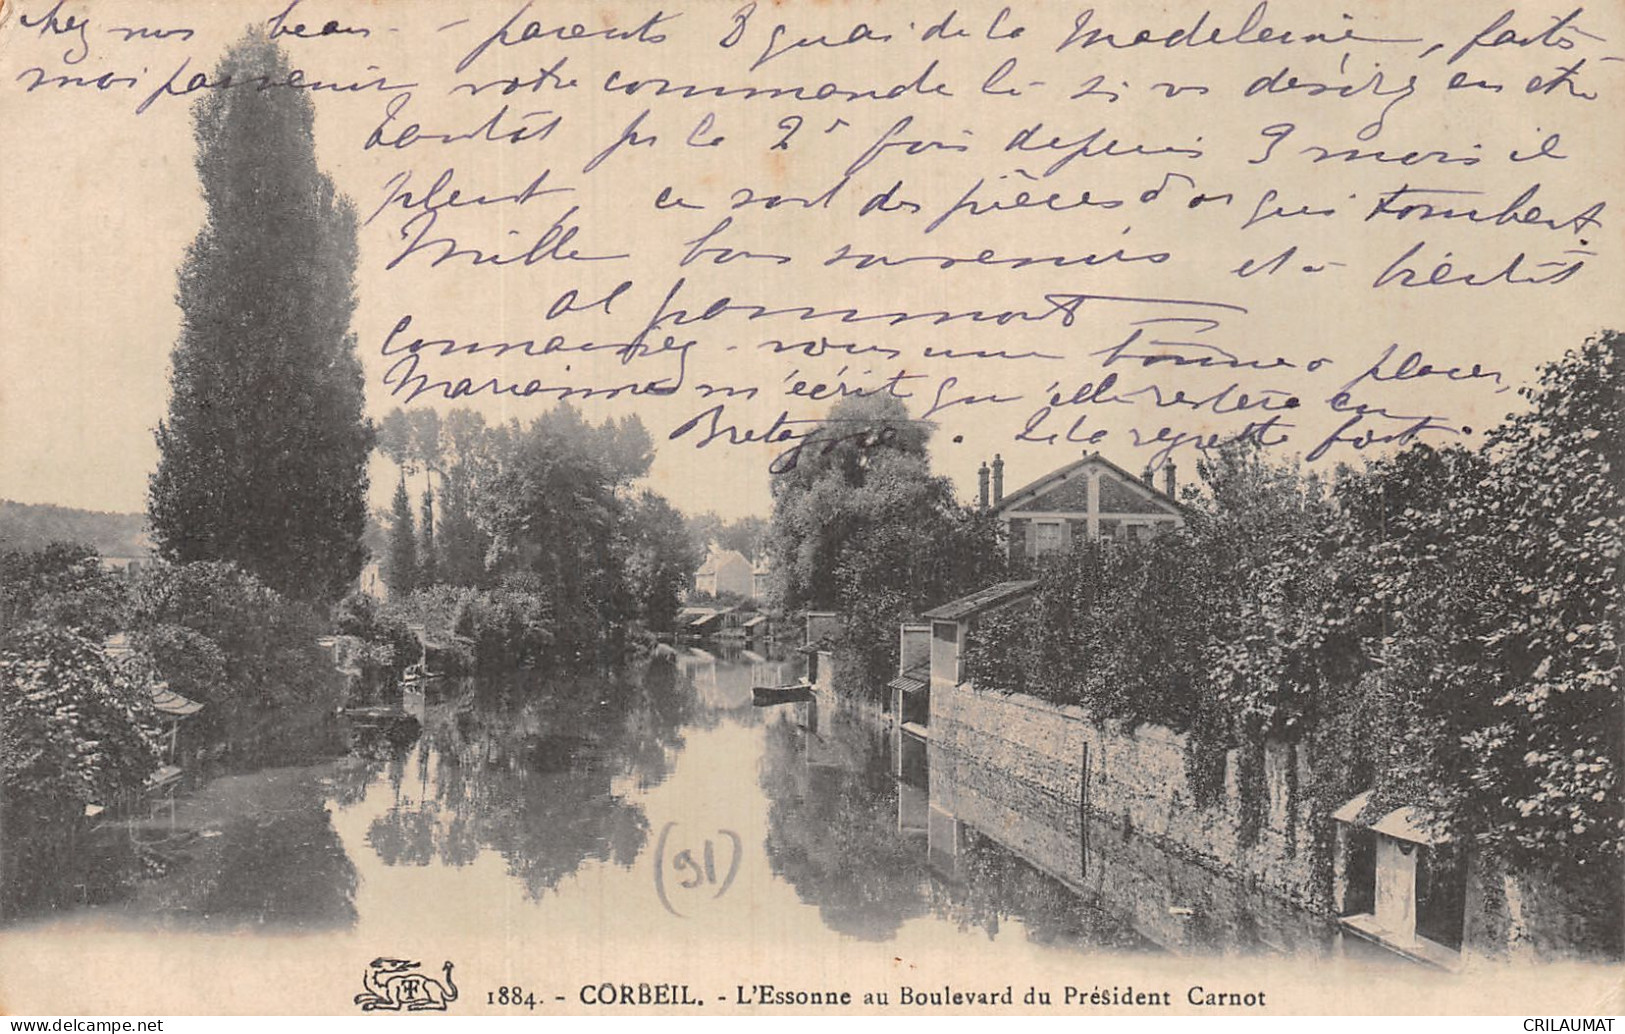 chez nos beaux-parents 3 quai de la Madeleine, faites-
moi parvenir votre commande là si vs désirez en être
tantôt pr la 2e fois depuis 3 mois il
pleut, ce sont des pièces d'or qui tombent.
Mille bons souvenirs et à bientôt
al pommort
Connaissez-vous une bonne à placer,
Marianne m'écrit qu'elle reste en
Bretagne. Je la regrette fort.
(91)
1884. - CORBEIL. - L'Essonne au Boulevard du Président Carnot
CRILAUMAT